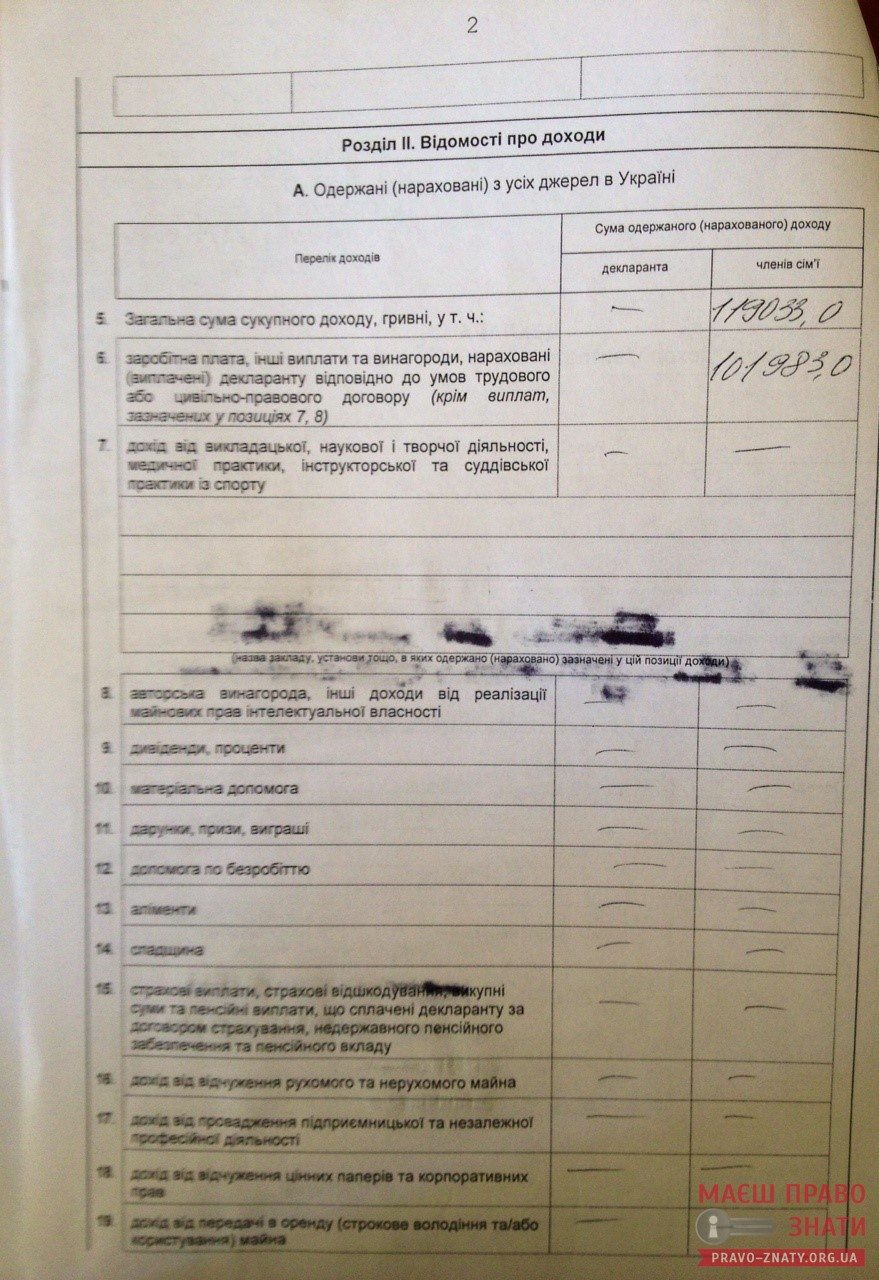 2
Розділ II. Відомості про доходи
А. Одержані (нараховані) з усіх джерел в Україні
Перелік доходів
Сума одержаного (нарахованого) доходу
декларанта
членів сім'ї
5. Загальна сума сукупного доходу, гривні, у т. ч.:
—
119033,0
6. заробітна плата, інші виплати та винагороди, нараховані
(виплачені) декларанту відповідно до умов трудового
або цивільно-правового договору (крім виплат,
зазначених у позиціях 7, 8)
—
101983,0
7. дохід від викладацької, наукової і творчої діяльності,
медичної практики, інструкторської та суддівської
практики із спорту
— —
(назва закладу, установи тощо, в яких одержано (нараховано) зазначені у цій позиції доходи)
8. авторська винагорода, інші доходи від реалізації
майнових прав інтелектуальної власності
— —
9. дивіденди, проценти — —
10. матеріальна допомога — —
11. дарунки, призи, виграші — —
12. допомога по безробіттю — —
13. аліменти — —
14. спадщина — —
15. страхові виплати, страхові відшкодування, викупні
суми та пенсійні виплати, що сплачені декларанту за
договором страхування, недержавного пенсійного
забезпечення та пенсійного вкладу
— —
16. дохід від відчуження рухомого та нерухомого майна — —
17. дохід від провадження підприємницької та незалежної
професійної діяльності
— —
18. дохід від відчуження цінних паперів та корпоративних
прав
— —
19. дохід від передачі в оренду (строкове володіння та/або
користування) майна
—
МАЄШ ПРАВО
ЗНАТИ
PRAVO-ZNATY.ORG.UA